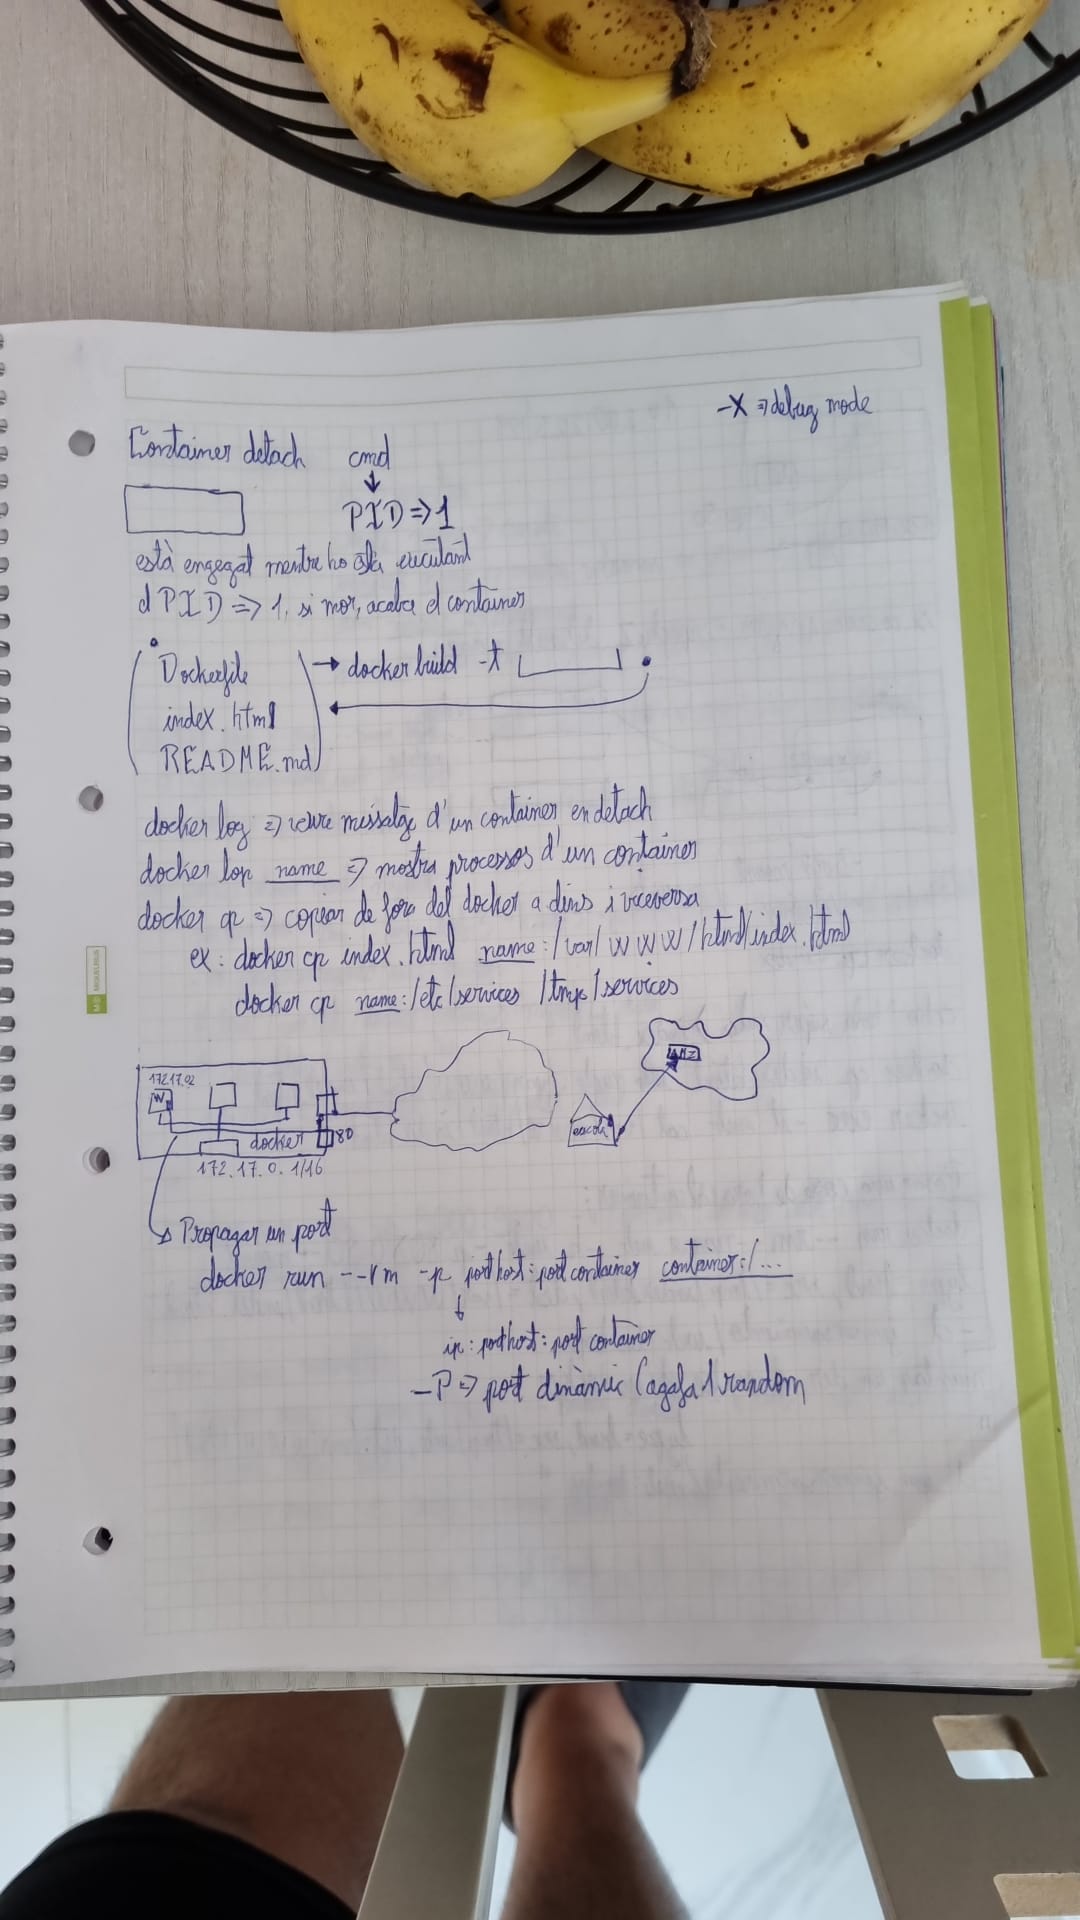 -X => debug mode
Container detach cmd
PID => 1
està engegat mentre ho està executant
el PID => 1, si mor, acaba el container
Dockerfile → docker build -t .
index.html
README.md
docker log => veure missatge d'un container en detach
docker top name => mostra processos d'un container
docker cp => copiar de fora del docker a dins i viceversa
ex: docker cp index.html name:/var/www/html/index.html
docker cp name:/etc/services /tmp/services
172.17.02
W
docker
80
172.17.0.1/16
escola
Propagar un port
docker run --rm -p port host:port container container:/...
ip:port host:port container
-P => port dinàmic (agafa 1 random
MIQUELRIUS